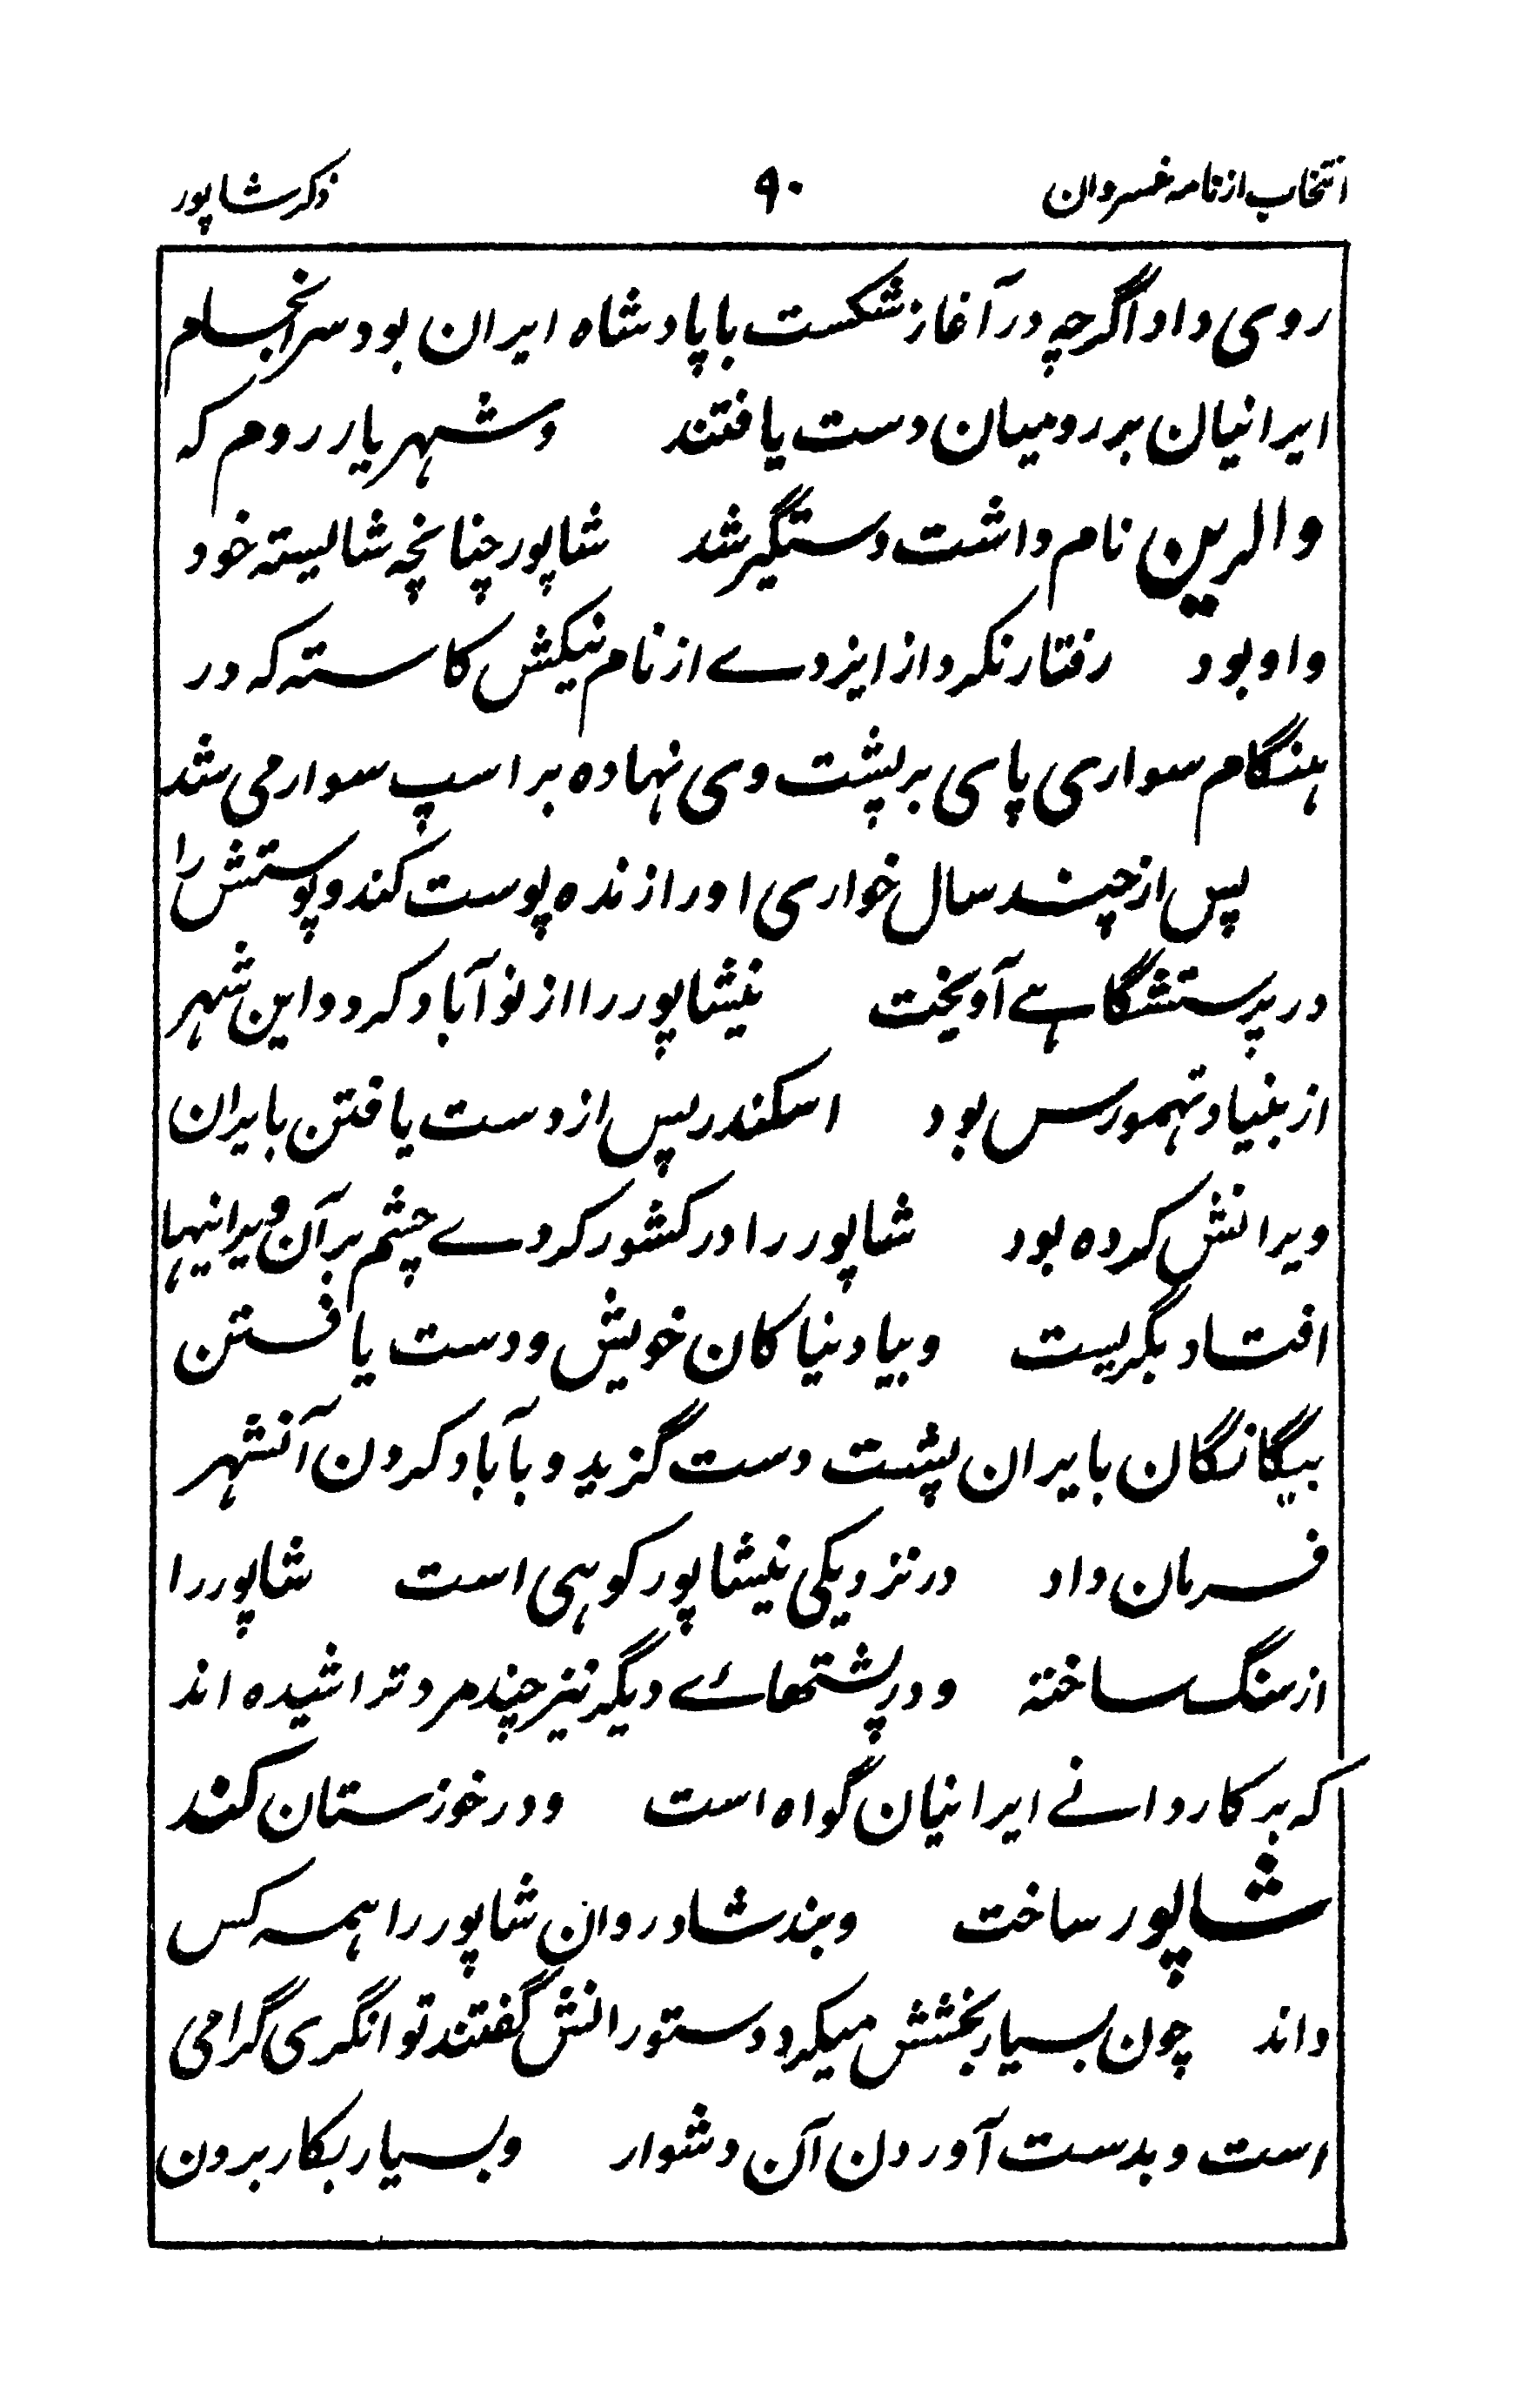 انتخاب از نامه خسروان ۹۰ ذکر شاپور
روی داد اگرچه در آغاز شکست با پادشاه ایران بود سرانجام
ایرانیان بر رومیان دست یافتند وشهریار روم که
والرین نام داشت دستگیر شد شاپور چنانچه شایسته خود
و او بود رفتار نکرد از ایزدے از نام نیکش کاسته که در
هنگام سواری پای بر پشت وی نهاده بر اسپ سوار می شد
پس از چند سال خواری او را زنده پوست کند و پوستش را
در پرستشگاہے آویخت نیشاپور را از نو آباد کرد و این شهر
از بنیاد تهمورس بود اسکندر پس از دست یافتن بایران
ویرانش کرده بود شاپور را در کشور کردے چشم بر آن ویرانیها
افتاد بگریست و بیاد نیاکان خویش و دست یافتن
بیگانگان بایران پشت دست گزید و بآباد کردن آنشهر
فرمان داد در نزدیکی نیشاپور کوهی است شاپور را
از سنگ ساخته و در پشتهاے دیگر نیز چند مرد تراشیده اند
که بر کاردانے ایرانیان گواه است و در خوزستان کند
شاپور ساخت و بند شادروان شاپور را همه کس
داند چون بسیار بخشش میکرد دستورانش گفتند توانگری گرامی
است و بدست آوردن آن دشوار و بسیار بکار بردن